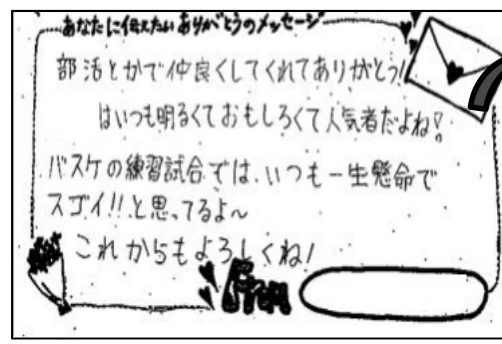 あなたに伝えたいありがとうのメッセージ
部活とかで仲良くしてくれてありがとう!
はいつも明るくておもしろくて人気者だよね!
バスケの練習試合では、いつも一生懸命で
スゴイ!!と思ってるよ~
これからもよろしくね!
From